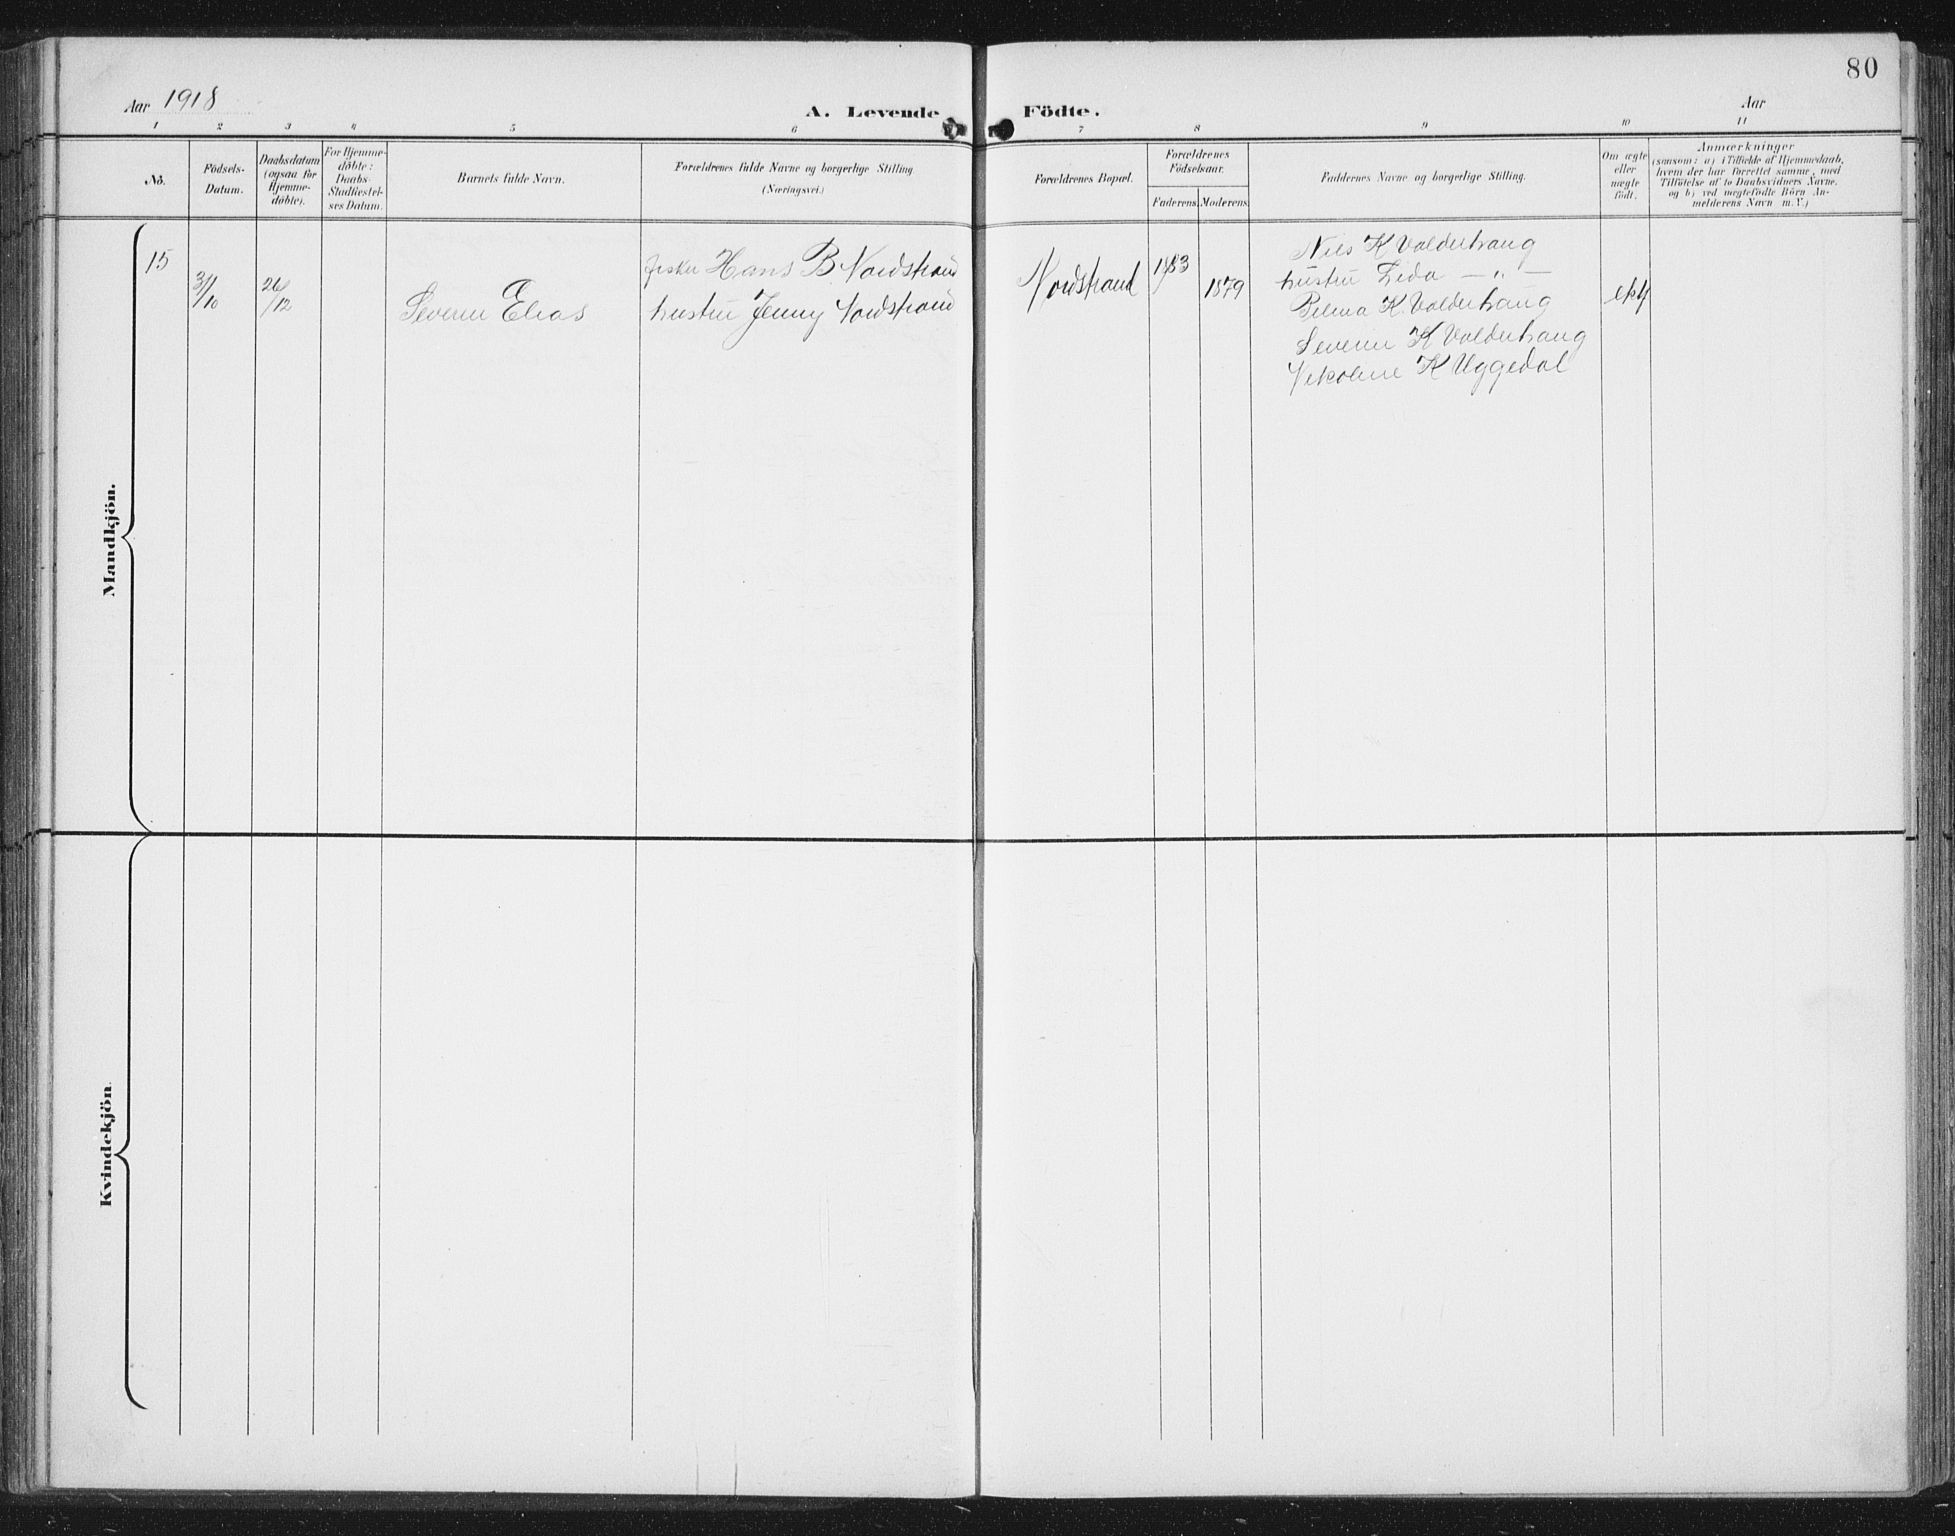 80
Aar 1918
A. Levende Födte.
Aar
1 2 3 4 5 6 7 8 9 10 11
No.
Födsels-
Datum.
Daabsdatum
(ogsaa for
Hjemme-
döbte).
For Hjemme-
döbte:
Daabs-
Stadfæstel-
ses Datum.
Barnets fulde Navn.
Forældrenes fulde Navne og borgerlige Stilling
(Næringsvei.)
Forældrenes Bopæl.
Forældrenes
Födselsaar.
Faderens. Moderens.
Faddernes Navne og borgerlige Stilling.
Om ægte
eller
uægte
födt.
Anmærkninger
(saasom: a) i Tilfælde af Hjemmedaab,
hvem der har forrettet samme, med
Tilföielse af to Daabsvidners Navne.
og b) ved uegtefödte Börn An-
melderens Navn m. V.)
Mandkjön.
15
3/10
26/12
Severin Elias
fisker Hans B Nordstrand
hustru Jenny Nordstrand
Nordstrand
1883
1879
Nils K Valderhaug
hustru Lida — „ —
K. Valderhaug
Severin K Valderhaug
Nikoline K Uggedal
ekt
Kvindekjön.